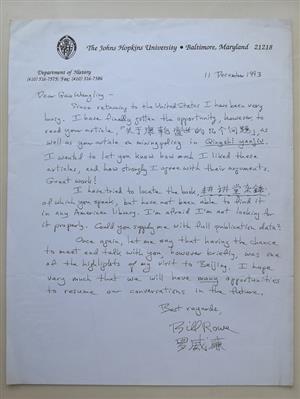 The Johns Hopkins University • Baltimore, Maryland 21218
Department of History
(410) 516-7575; Fax (410) 516-7586
11 December 1993
Dear Gao Wangling —
Since returning to the United States I have been very
busy. I have finally gotten the opportunity, however, to
read your article, "关于康乾盛世的几个问题", as
well as your article on mining policy in Qingshi yanjiu.
I wanted to let you know how much I liked these
articles, and how strongly I agree with their arguments.
Great work!
I have tried to locate the book,
of which you speak, but have not been able to find it
in any American library. I'm afraid I'm not looking for
it properly. Could you supply me with full publication data?
Once again, let me say that having the chance
to meet and talk with you, however briefly, was one
of the highlights of my visit to Beijing. I hope
very much that we will have many opportunities
to resume our conversations in the future.
Best regards,
Bill Rowe
罗威廉